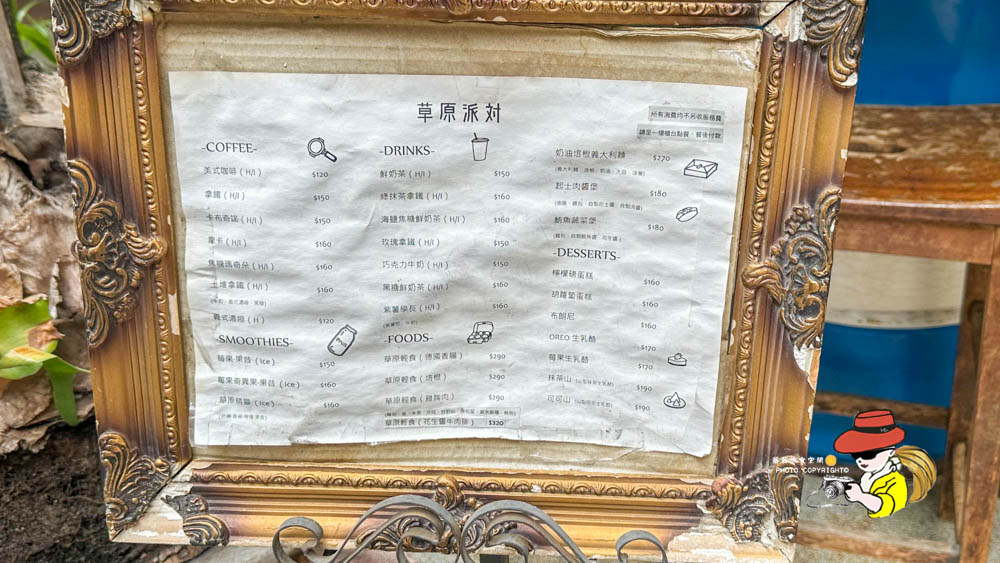 草原派対
所有消費均不另收服務費
請至一樓櫃台點餐、餐後付款
-COFFEE-
美式咖啡 ( H/I ) $120
拿鐵 ( H/I ) $150
卡布奇諾 ( H/I ) $150
摩卡 ( H/I ) $160
焦糖瑪奇朵 ( H/I ) $160
( H/I ) $160
義式濃縮 ( H ) $120
-SMOOTHIES-
莓果·果昔 ( Ice ) $150
莓果奇異果·果昔 ( Ice ) $160
草原精靈 ( Ice ) $160
-DRINKS-
鮮奶茶 ( H/I ) $150
綠抹茶拿鐵 ( H/I ) $160
海鹽焦糖鮮奶茶 ( H/I ) $160
玫瑰拿鐵 ( H/I ) $150
巧克力牛奶 ( H/I ) $150
黑糖鮮奶茶 ( H/I ) $160
紫薯學長 ( H/I ) $160
-FOODS-
草原輕食 ( 德國香腸 ) $290
草原輕食 ( 培根 ) $290
草原輕食 ( 雞胸肉 ) $290
草原輕食 ( 花生醬牛肉排 ) $320
奶油培根義大利麵 $270
起士肉醬堡 $180
鮪魚蔬菜堡 $180
-DESSERTS-
檸檬磅蛋糕 $160
胡蘿蔔蛋糕 $160
布朗尼 $160
OREO 生乳酪 $170
莓果生乳酪 $170
抹茶山 $190
可可山 $190
PHOTO COPYRIGHT©